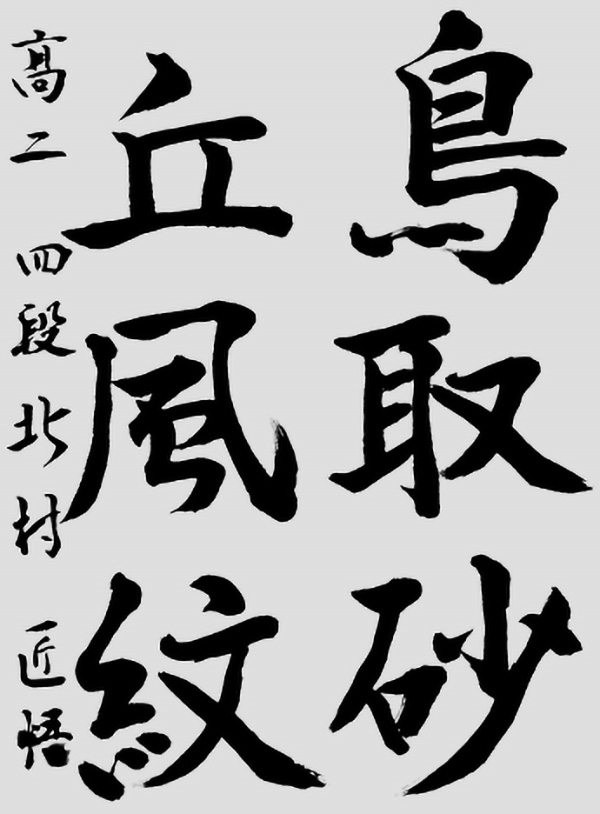 鳥取砂
丘風紋
高二 四段 北村 匠悟